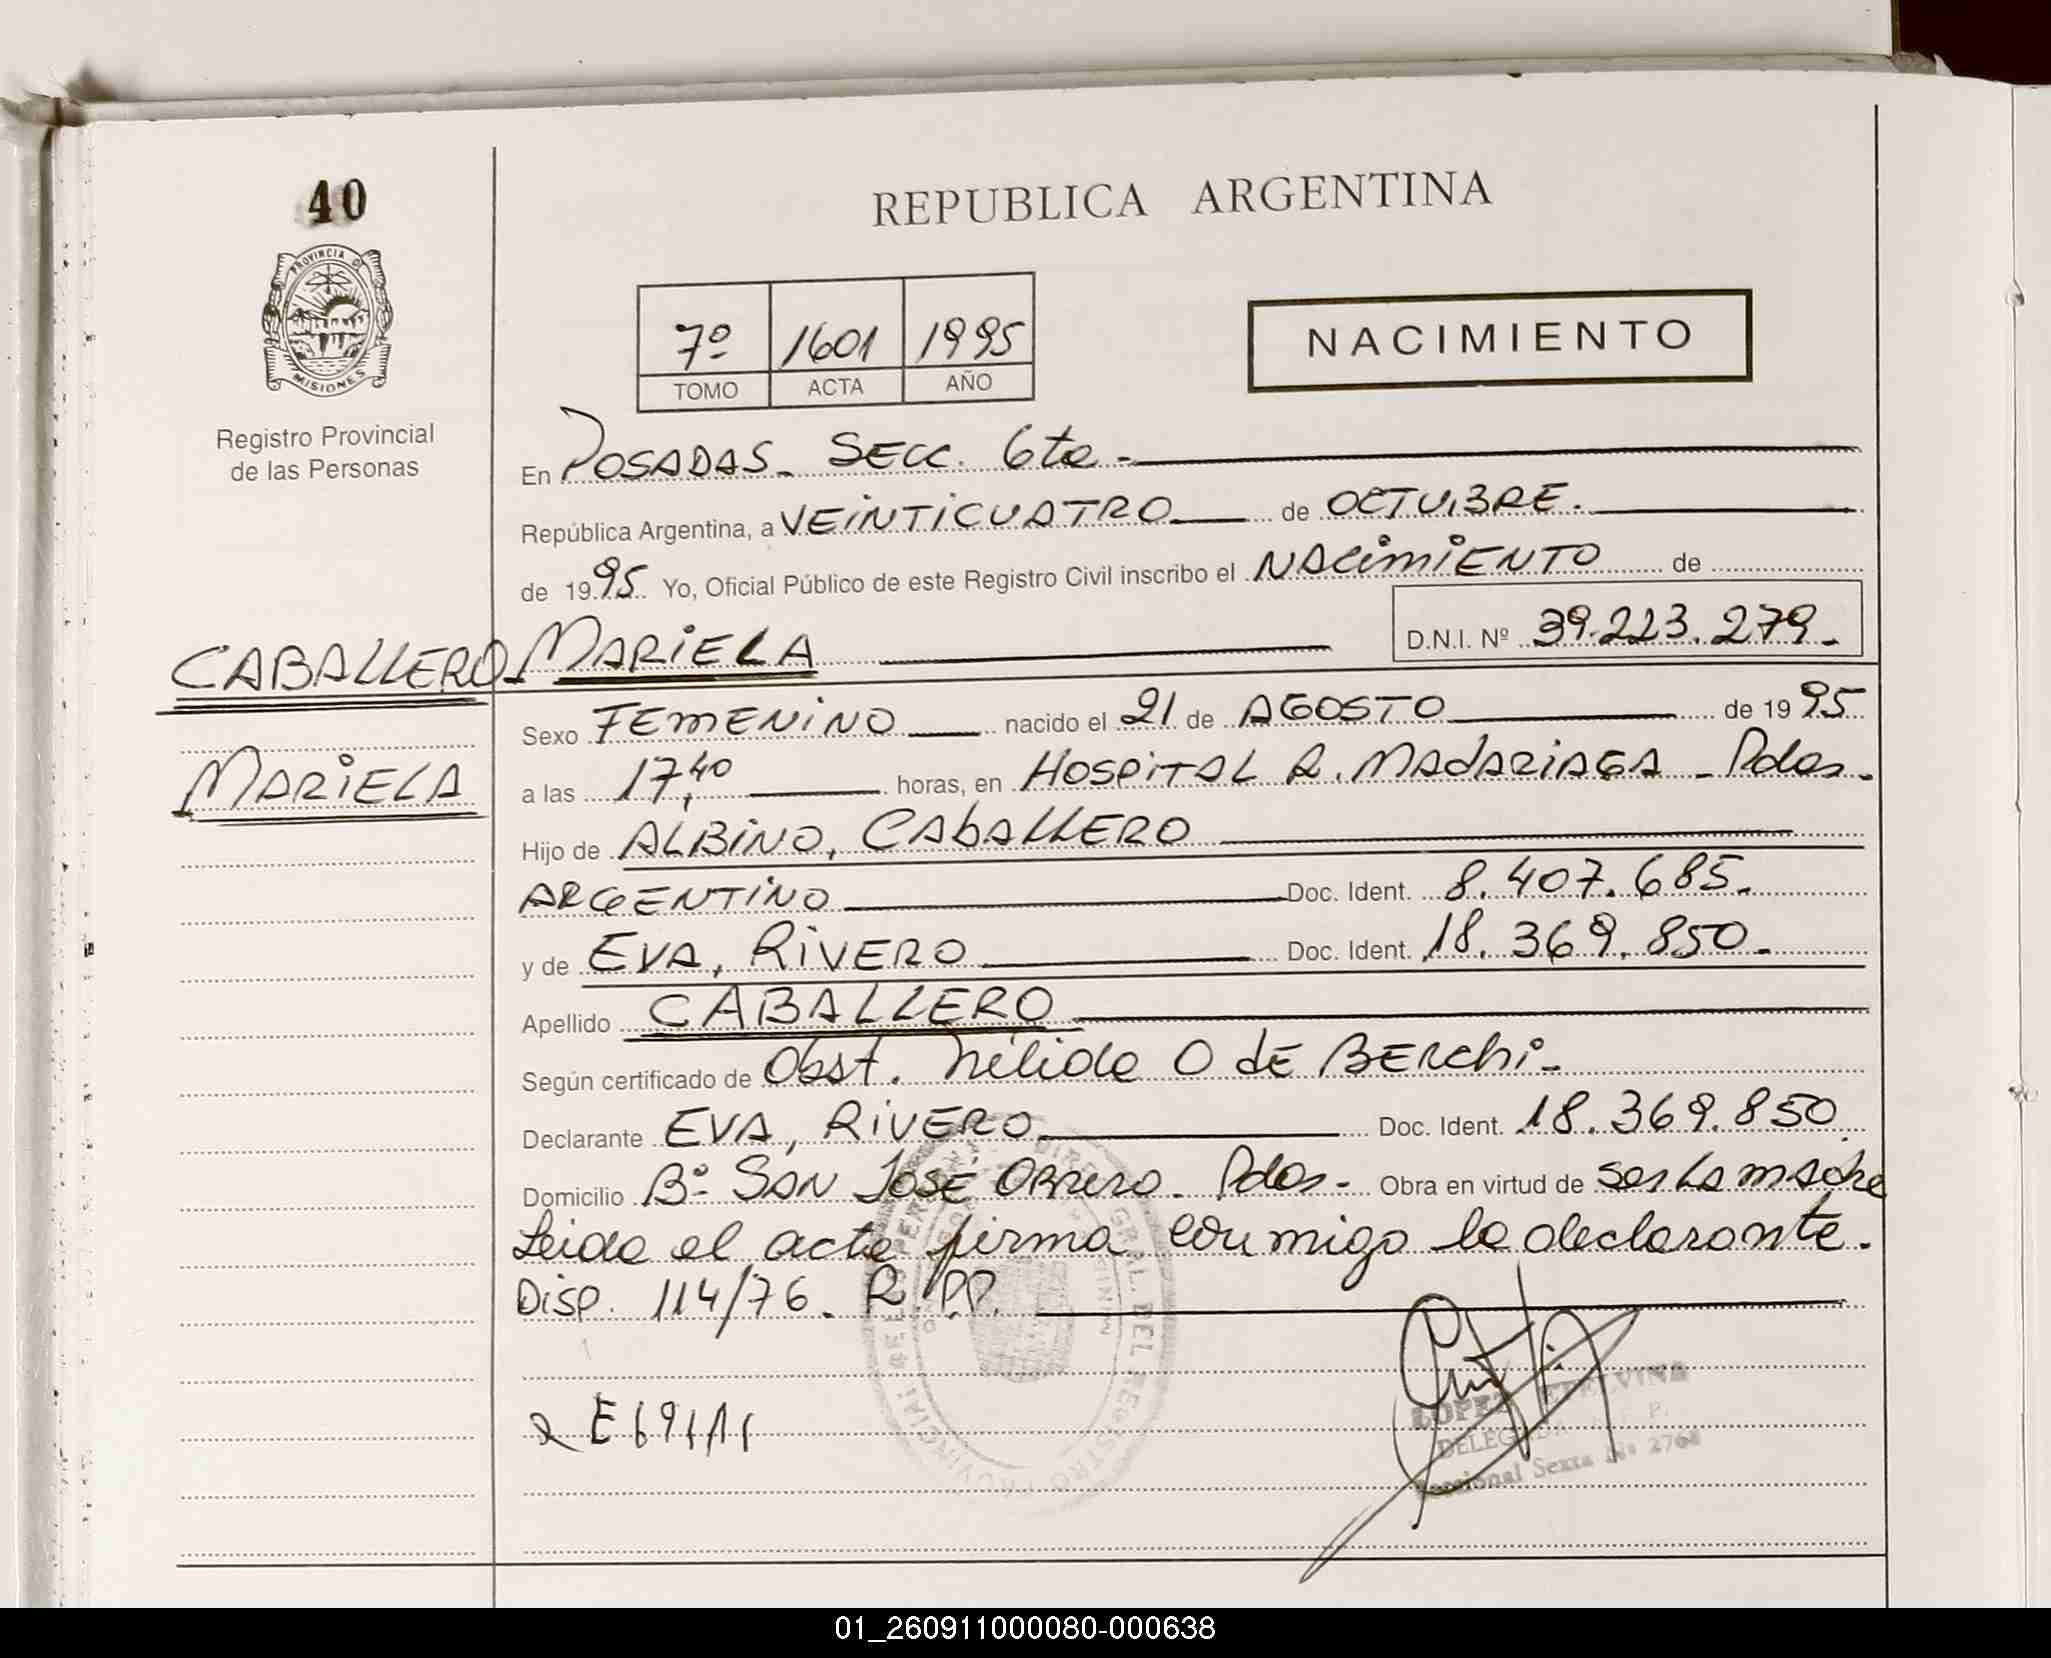 40
REPUBLICA ARGENTINA
PROVINCIA D
MISIONES
Registro Provincial
de las Personas
7º 1601 1995
TOMO ACTA AÑO
NACIMIENTO
En POSADAS. SECC. 6ta.
República Argentina, a VEINTICUATRO de OCTUBRE.
de 1995 Yo, Oficial Público de este Registro Civil inscribo el NACIMIENTO de
CABALLERO MARIELA
D.N.I. Nº 39.223.279.
MARIELA
Sexo FEMENINO nacido el 21 de AGOSTO de 1995
a las 17,40 horas, en HOSPITAL R. MADARIAGA - Pdas.
Hijo de ALBINO, CABALLERO
ARGENTINO Doc. Ident. 8.407.685.
y de EVA, RIVERO Doc. Ident. 18.369.850.
Apellido CABALLERO
Según certificado de Obst. Nélida O de BERCHI.
Declarante EVA, RIVERO Doc. Ident. 18.369.850
Domicilio Bº SAN JOSÉ OBRERO. Pdas. Obra en virtud de ser LA MADRE
Leida el acta firma conmigo la declarante.
Disp. 114/76. R.P.P.
LOPEZ ETELVINA
DELEGADA R. P.
Seccional Sexta Nº 2764
01_260911000080-000638